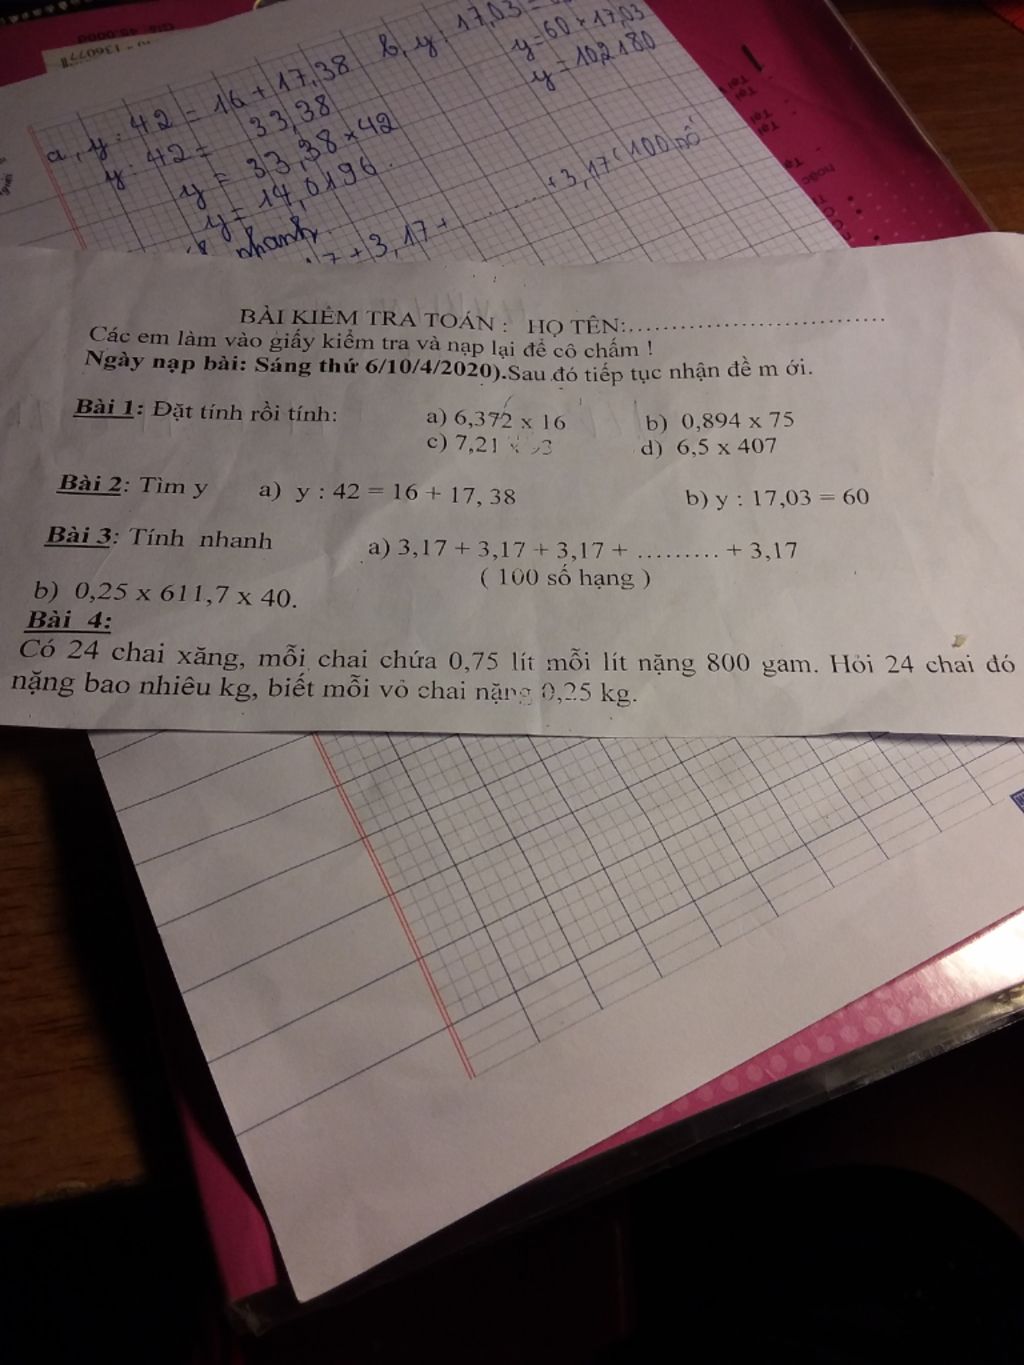 a, y : 42 = 16 + 17,38
y : 42 = 33,38
y = 33,38 x 42
y = 14,0196.
b, y : 17,03 =
y = 60 x 17,03
y = 102180
nhanh
+ 3,17 + ......... + 3,17 (100 số
BÀI KIỂM TRA TOÁN : HỌ TÊN:...............................
Các em làm vào giấy kiểm tra và nạp lại để cô chấm !
Ngày nạp bài: Sáng thứ 6/10/4/2020).Sau đó tiếp tục nhận đề m ới.
Bài 1: Đặt tính rồi tính: a) 6,372 x 16 b) 0,894 x 75
c) 7,21 x d) 6,5 x 407
Bài 2: Tìm y a) y : 42 = 16 + 17, 38 b) y : 17,03 = 60
Bài 3: Tính nhanh a) 3,17 + 3,17 + 3,17 + ......... + 3,17
( 100 số hạng )
b) 0,25 x 611,7 x 40.
Bài 4:
Có 24 chai xăng, mỗi chai chứa 0,75 lít mỗi lít nặng 800 gam. Hỏi 24 chai đó
nặng bao nhiêu kg, biết mỗi vỏ chai nặng 0,25 kg.